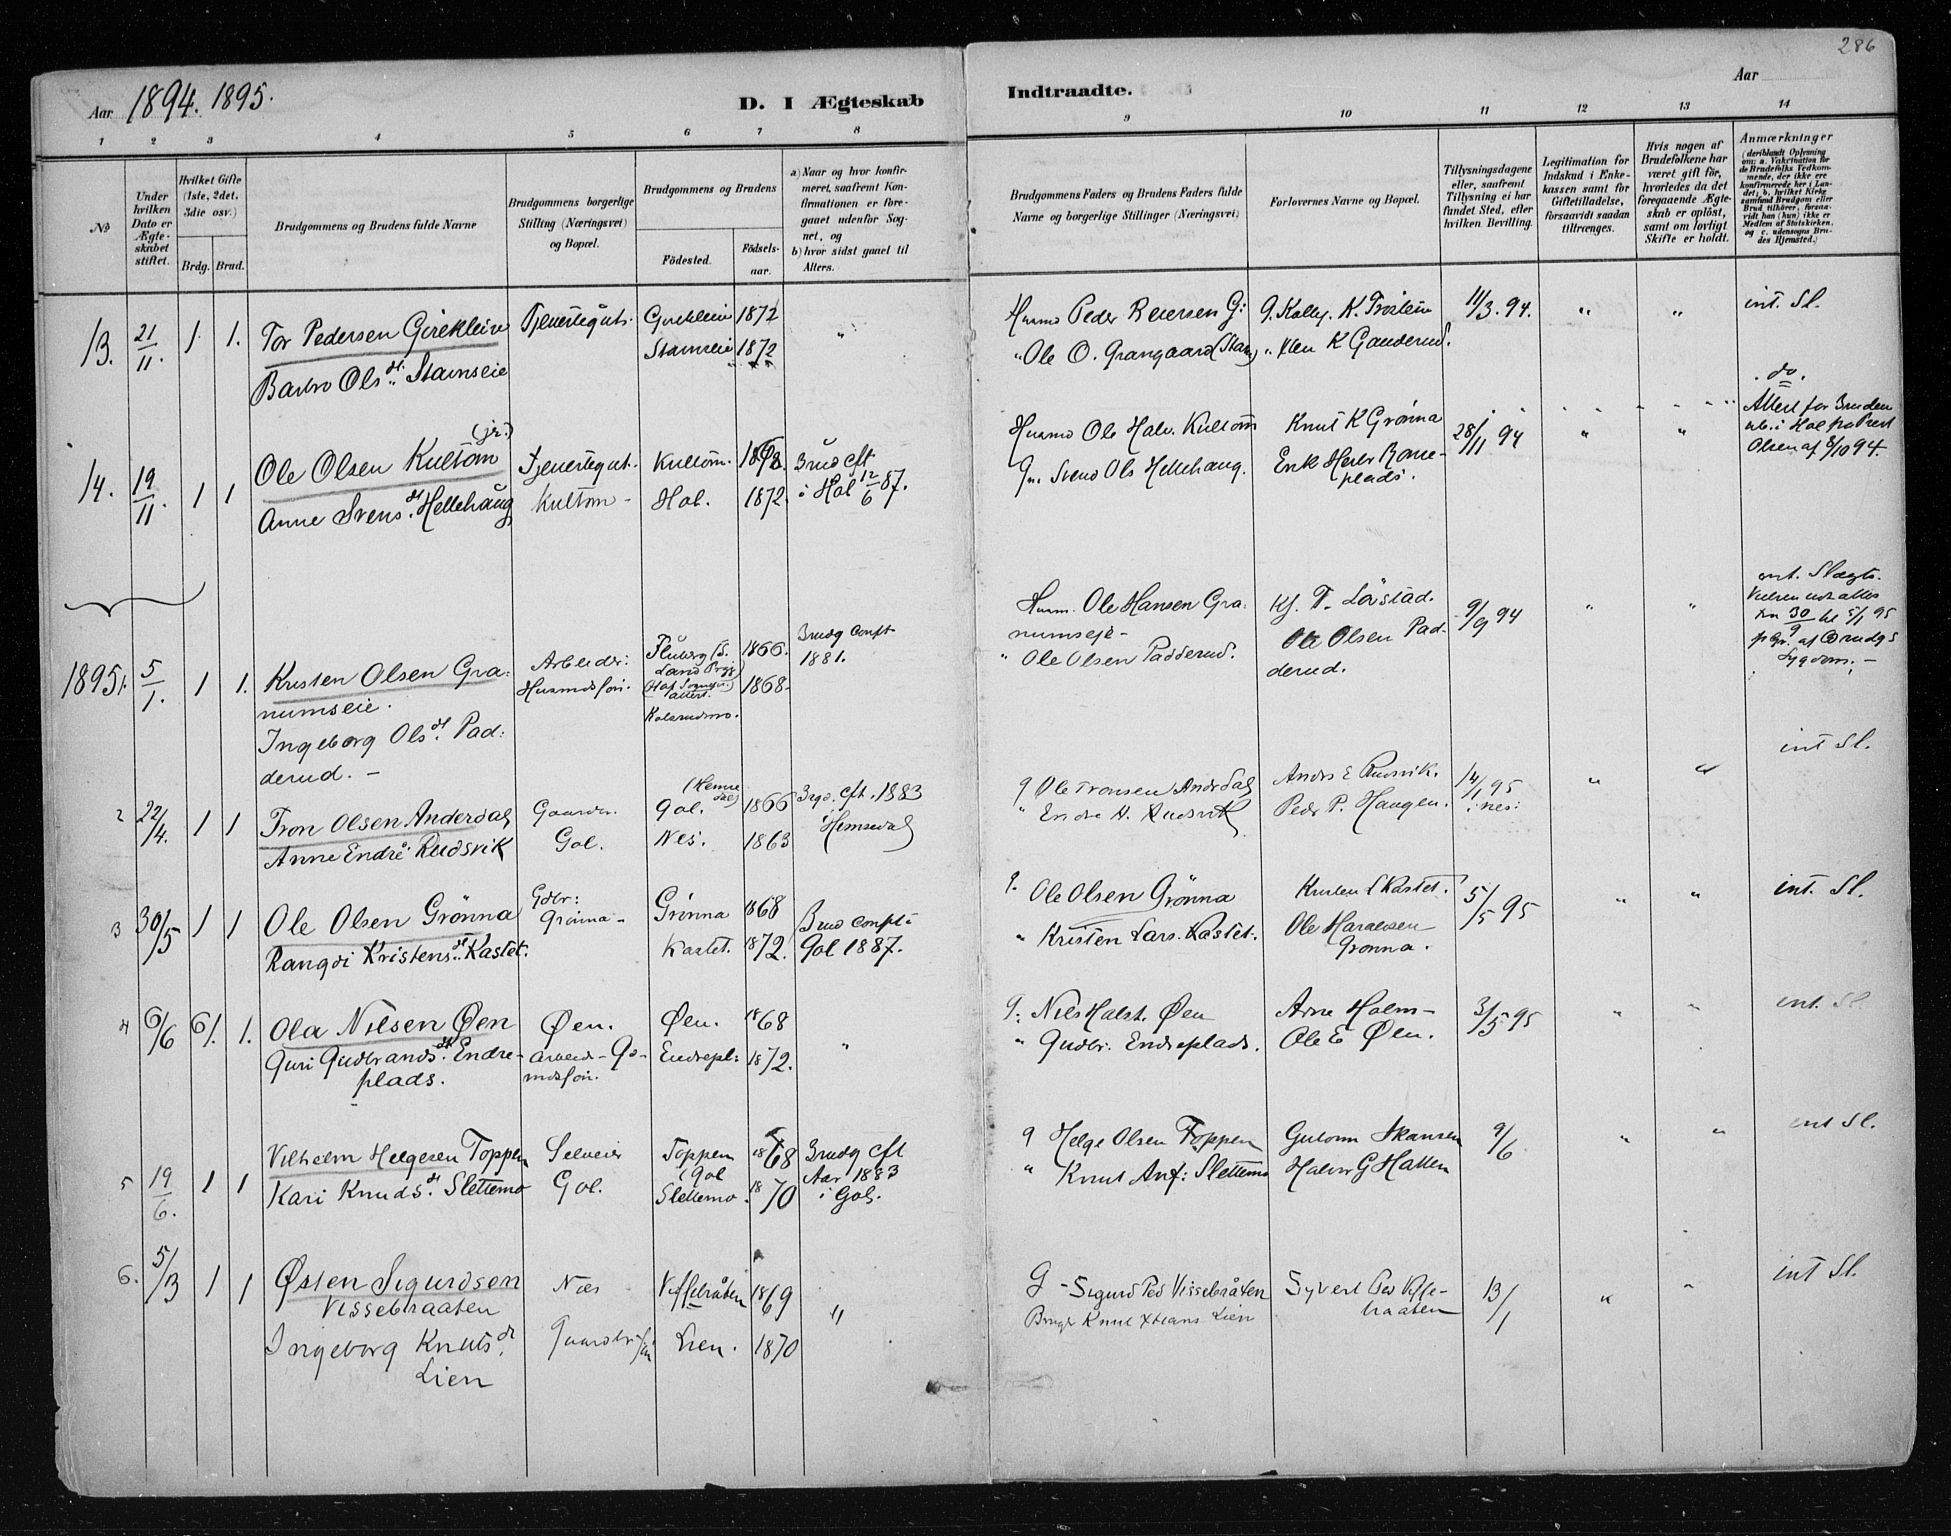 286
Aar 1894. 1895.
D. I Ægteskab
Indtraadte.
Aar
1 2 3 4 5 6 7 8
9 10 11 12 13 14
No
Under hvilken Dato er Ægteskabet stiftet.
Hvilket Gifte (1ste, 2det, 3die osv.)
Brdg. Brud.
Brudgommens og Brudens fulde Navne
Brudgommens borgerlige Stilling (Næringsvei) og Bopæl.
Brudgommens og Brudens
Fødested. Fødsels-aar.
a) Naar og hvor konfirmeret, saafremt Konfirmationen er foregaaet udenfor Sognet, og
b) hvor sidst gaaet til Alters.
Brudgommens Faders og Brudens Faders fulde Navne og borgerlige Stillinger (Næringsvei)
Forlovernes Navne og Bopæl.
Tillysningsdagene eller, saafremt Tillysning ei har fundet Sted, efter hvilken Bevilling.
Legitimation for Indskud i Enkekassen samt for Giftetilladelse, forsaavidt saadan tiltrænges.
Hvis nogen af Brudefolkene har været gift før, hvorledes da det foregaaende Ægteskab er opløst, samt om lovligt Skifte er holdt.
Anmærkninger
(deriblandt Oplysning om: a. Vakcination for de Brudefolks Vedkommende, der ikke ere konfirmerede her i Landet; b. hvilket Kirkesamfund Brudgom eller Brud tilhører, forsaavidt han (hun) ikke er Medlem af Statskirken, og c. udensogns Brudes Hjemsted.)
13. 21/11. 1 1. Tor Pedersen Girekleiv Tjenestegut. Girekleiv 1872 "
Barbro Olsdt. Stamseie Stamseie 1872
Husmd Peder Petersen G: 11/3. 94. " " int. Sl.
" Ole O. Grangaard (Stam) K Ganderud.
14. 19/11. 1 1 Ole Olsen Kultom (jr.) Tjenestegut. Kultom. 1868. Brud cft
Anne Svensdt. Hellehaug Kultom - Hol. 1872. i Hol 12/6 87.
Husmd Ole Halv. Kultom Knut K Grønna 28/11 94 " "
G. Svend Ols Hellehaug. Erik Herbr Rameplads.
do.
Attest for Bruden
Olsen af 8/10 94.
1895 1. 5/1. 1 1. Kristen Olsen Granumseie. Arbeider: Husmdsøn. Fluberg (S. Land Prgj) 1866. Brudg Conft 1881.
Ingeborg Olsdt. Padderud. - 1868.
Husm. Ole Hansen Granumseje - Kl. T. Løvstad. 9/9 94 " "
" Ole Olsen Padderud. Ole Olsen Padderud.
int. Slægts.
30/9 til 5/1 95
Sygdom; -
2 22/4. 1 1 Tron Olsen Anderdal Gaardbr. Gol. (Hemsedal) 1866 Brgd. Cft. 1883
Anne Endrē Rudsvik Gol. Nes. 1863 i Hemsedal
g Ole Tronsen Anderdal Andrs E Rudsvik. 14/1 95 " " int Sl.
" Endre A. Rudsvik Pedr P. Haugen. i nes:
3 30/5 1 1 Ole Olsen Grønna Gdbr: Grønna - Grønna 1868 Brud Conft i
Rangdi Kristensdt. Kastet. Kastet. 1872. Gol 1887.
g. Ole Olsen Grønna Kristen L Kastet. 5/5 95 " " int. Sl.
" Kristen Lars. Kastet. Ole Haraldsen Grønna.
4 6/6 6/. 1. Ola Nilsen Øen Øen. Øen. 1868
Guri Gudbrandsdt. Endreplads. Arbeid - Gdmdsøn. Endrepl: 1872. "
g: Nils Halst. Øen Arne Holm - 3/5 95 " " int. Sl
" Gudbr. Endreplads. Ole E Øen.
5 19/6. 1 1 Vilhelm Helgesen Toppen Selveier Toppen (Gol 1868 Brudg Cft
Kari Knudsdt. Slettemo Gol. Slettemo. 1870 Aar 1883 i Gol.
g Helge Olsen Toppen Guttorm Skansen 9/6 " " int Sl.
" Knut Anf: Slettemo Halvor G Hatten
6. 5/3 1 1 Østen Sigurdsen Vissebraaten Næs Vissebråten 1869 "
Ingeborg Knutsdt. Lien Gaardbr. søn Lien. 1870
G - Sigurd Ped Vissebråten Syvert Ped Vissebraaten 13/1 " " int Sl.
Brugr Knut Lien